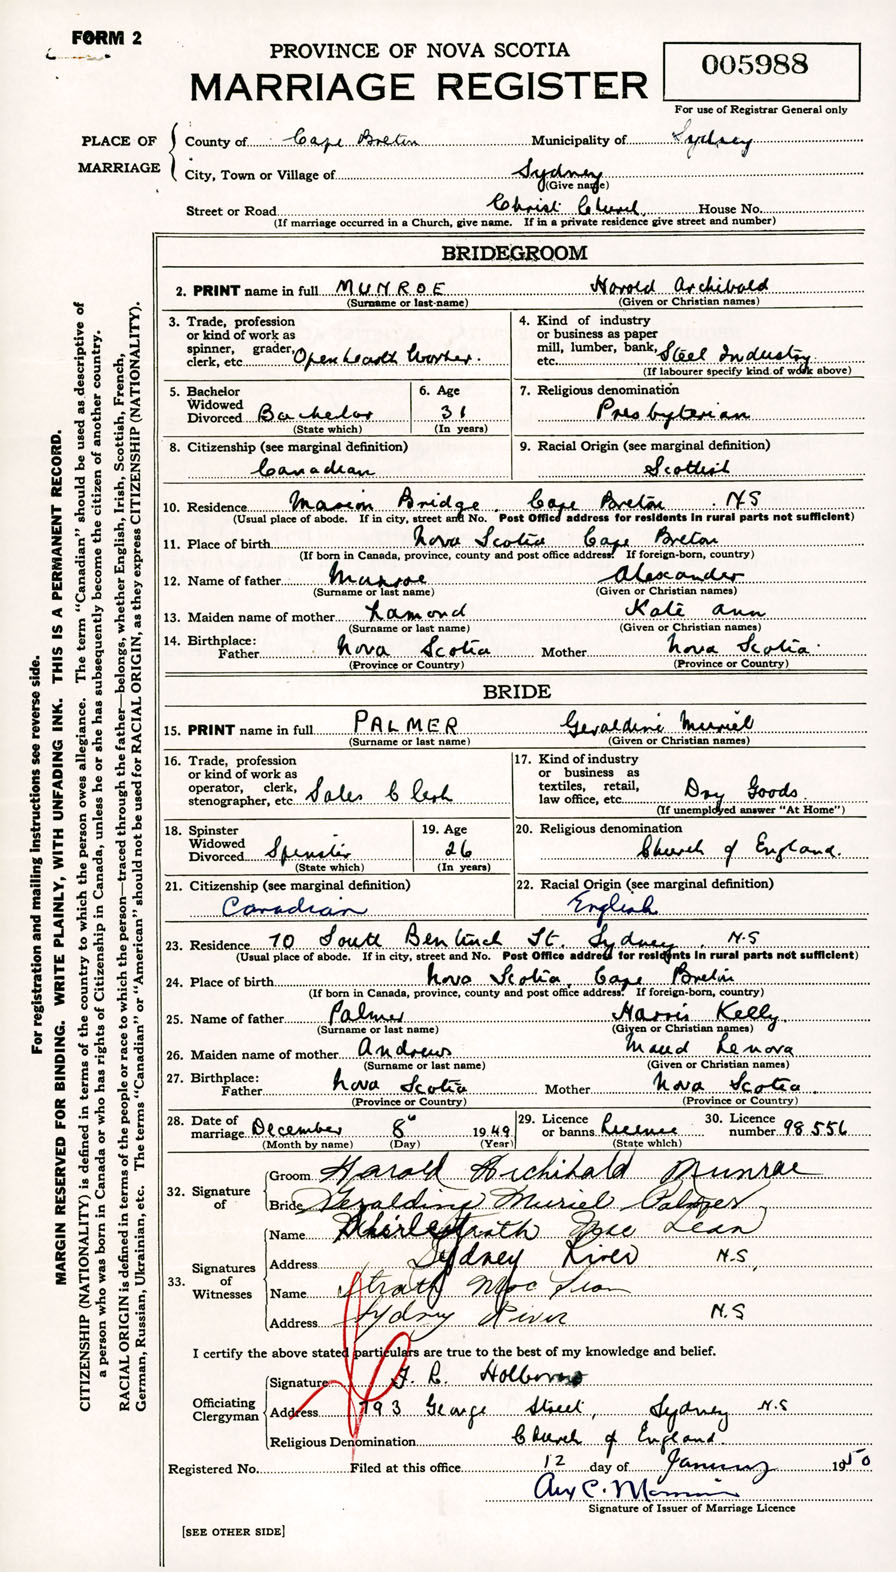 FORM 2
PROVINCE OF NOVA SCOTIA
MARRIAGE REGISTER
005988
For use of Registrar General only
PLACE OF MARRIAGE
County of Cape Breton Municipality of Sydney
City, Town or Village of Sydney
(Give name)
Street or Road Christ Church, House No.
(If marriage occurred in a Church, give name. If in a private residence give street and number)
BRIDEGROOM
2. PRINT name in full MUNROE Harold Archibald
(Surname or last-name) (Given or Christian names)
3. Trade, profession or kind of work as spinner, grader, clerk, etc. Open hearth Worker.
4. Kind of industry or business as paper mill, lumber, bank, etc. Steel Industry
(If labourer specify kind of work above)
5. Bachelor Widowed Divorced Bachelor
(State which)
6. Age 31
(In years)
7. Religious denomination Presbyterian
8. Citizenship (see marginal definition) Canadian
9. Racial Origin (see marginal definition) Scottish
10. Residence Marion Bridge, Cape Breton N.S
(Usual place of abode. If in city, street and No. Post Office address for residents in rural parts not sufficient)
11. Place of birth Nova Scotia Cape Breton
(If born in Canada, province, county and post office address. If foreign-born, country)
12. Name of father Munroe Alexander
(Surname or last name) (Given or Christian names)
13. Maiden name of mother Lamond Kate Ann
(Surname or last name) (Given or Christian names)
14. Birthplace: Father Nova Scotia Mother Nova Scotia
(Province or Country) (Province or Country)
BRIDE
15. PRINT name in full PALMER Geraldine Muriel
(Surname or last name) (Given or Christian names)
16. Trade, profession or kind of work as operator, clerk, stenographer, etc. Sales Clerk
17. Kind of industry or business as textiles, retail, law office, etc. Dry Goods
(If unemployed answer "At Home")
18. Spinster Widowed Divorced Spinster
(State which)
19. Age 26
(In years)
20. Religious denomination Church of England.
21. Citizenship (see marginal definition) Canadian
22. Racial Origin (see marginal definition) English
23. Residence 70 South Bentinck St. Sydney, N.S
(Usual place of abode. If in city, street and No. Post Office address for residents in rural parts not sufficient)
24. Place of birth Nova Scotia, Cape Breton
(If born in Canada, province, county and post office address. If foreign-born, country)
25. Name of father Palmer Harris Kelly
(Surname or last name) (Given or Christian names)
26. Maiden name of mother Andrews Maud Lenova
(Surname or last name) (Given or Christian names)
27. Birthplace: Father Nova Scotia Mother Nova Scotia
(Province or Country) (Province or Country)
28. Date of marriage December 8" 1949
(Month by name) (Day) (Year)
29. Licence or banns Licence
(State which)
30. Licence number 98556
32. Signature of
Groom Harold Archibald Munroe
Bride Geraldine Muriel Palmer
33. Signatures of Witnesses
Name Strath Mac Lean
Address Sydney River N.S.
Name Strath Mac Lean
Address Sydney River N.S
I certify the above stated particulars are true to the best of my knowledge and belief.
Officiating Clergyman
Signature
Address 793 George Street, Sydney N.S
Religious Denomination Church of England.
Registered No. Filed at this office 12 day of January 1950
Signature of Issuer of Marriage Licence
[SEE OTHER SIDE]
For registration and mailing instructions see reverse side.
MARGIN RESERVED FOR BINDING. WRITE PLAINLY, WITH UNFADING INK. THIS IS A PERMANENT RECORD.
CITIZENSHIP (NATIONALITY) is defined in terms of the country to which the person owes allegiance. The term "Canadian" should be used as descriptive of
a person who was born in Canada or who has rights of Citizenship in Canada, unless he or she has subsequently become the citizen of another country.
RACIAL ORIGIN is defined in terms of the people or race to which the person—traced through the father—belongs, whether English, Irish, Scottish, French,
German, Russian, Ukrainian, etc. The terms "Canadian" or "American" should not be used for RACIAL ORIGIN, as they express CITIZENSHIP (NATIONALITY).